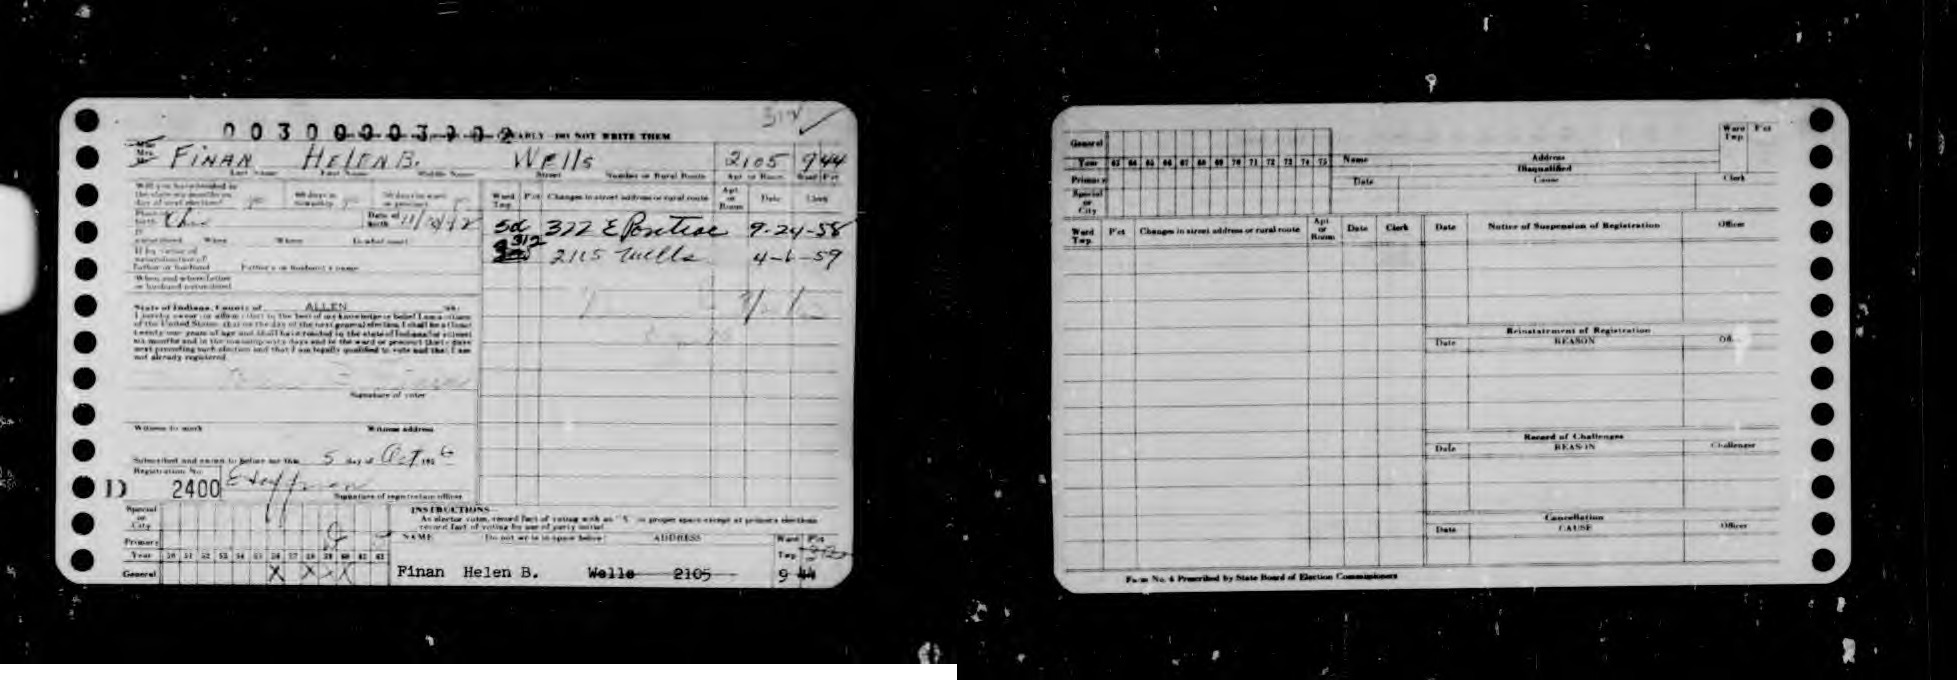 312 ✓
0 0 3 0 0 0 0 0 3 9 0 2 DO NOT WRITE THEM
Mrs. FINAN HELEN B. Wells 2105 9 44
Last Name First Name Middle Name Street Number or Rural Route Apt or Room Ward Pct
Will you have resided in the state six months on day of next election?
60 days in township
30 days in ward or precinct
Place of birth Ohio Date of birth 11/
If naturalized When Where In what court
If by virtue of naturalization of Father or husband Father's or husband's name
When and where father or husband naturalized
Ward Twp. Pct Changes in street address or rural route Apt or Room Date Clerk
5d 322 E Pontiac 9-24-58
312 2115 Wells 4-6-59
State of Indiana, County of ALLEN ss:
I hereby swear (or affirm) that to the best of my knowledge or belief I am a citizen
of the United States, that on the day of the next general election, I shall be at least
twenty-one years of age and shall have resided in the state of Indiana for at least
six months and in the township sixty days and in the ward or precinct thirty days
next preceding such election and that I am legally qualified to vote and that I am
not already registered.
Signature of voter
Witness to mark Witness address
Subscribed and sworn to before me this 5 day of Oct 1956
Registration No.
D 2400
Signature of registration officer
Special or City
Primary
Year 50 51 52 53 54 55 56 57 58 59 60 61 62
General X X X X
INSTRUCTIONS
As elector votes, record fact of voting with an "X" in proper space except at primary elections
record fact of voting by use of party initial
NAME Do not write in space below ADDRESS Ward Twp Pct
Finan Helen B. Wells 2105 9 44
General
Year 63 64 65 66 67 68 69 70 71 72 73 74 75
Primary
Special or City
Name Address Ward Twp. Pct
Disqualified
Date Cause Clerk
Ward Twp. Pct Changes in street address or rural route Apt or Room Date Clerk
Date Notice of Suspension of Registration Officer
Reinstatement of Registration
Date REASON
Record of Challenges
Date REASON Challenger
Cancellation
Date CAUSE Officer
Form No. 4 Prescribed by State Board of Election Commissioners